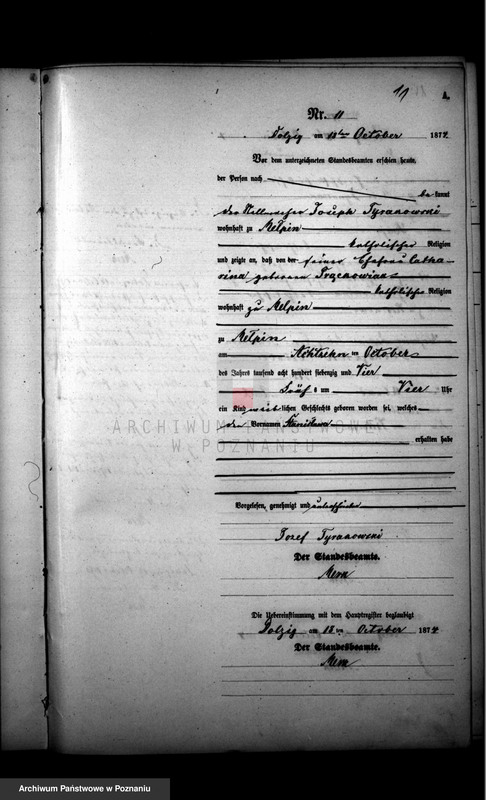 11
A.
Nr. 11
Dolzig am 18ten October 1874
Vor dem unterzeichneten Standesbeamten erschien heute,
der Person nach
be kannt
der Stellmacher Joseph Tyranowski
wohnhaft zu Melpin
katholischer Religion
und zeigte an, daß von der seiner Ehefrau Catha-
rina geborenen
katholischer Religion
wohnhaft zu Melpin
zu Melpin
am Achtzehn ten October
des Jahres tausend acht hundert siebenzig und Vier
Früh um Vier Uhr
ein Kind weib lichen Geschlechts geboren worden sei, welches
den Vornamen Stanislawa
erhalten habe
ARCHIWUM PAŃSTWOWE
W POZNANIU
Vorgelesen, genehmigt und unterschrieben
Jozef Tyranowski
Der Standesbeamte.
Die Uebereinstimmung mit dem Hauptregister beglaubigt
Dolzig am 18 ten October 1874
Der Standesbeamte.
Archiwum Państwowe w Poznaniu